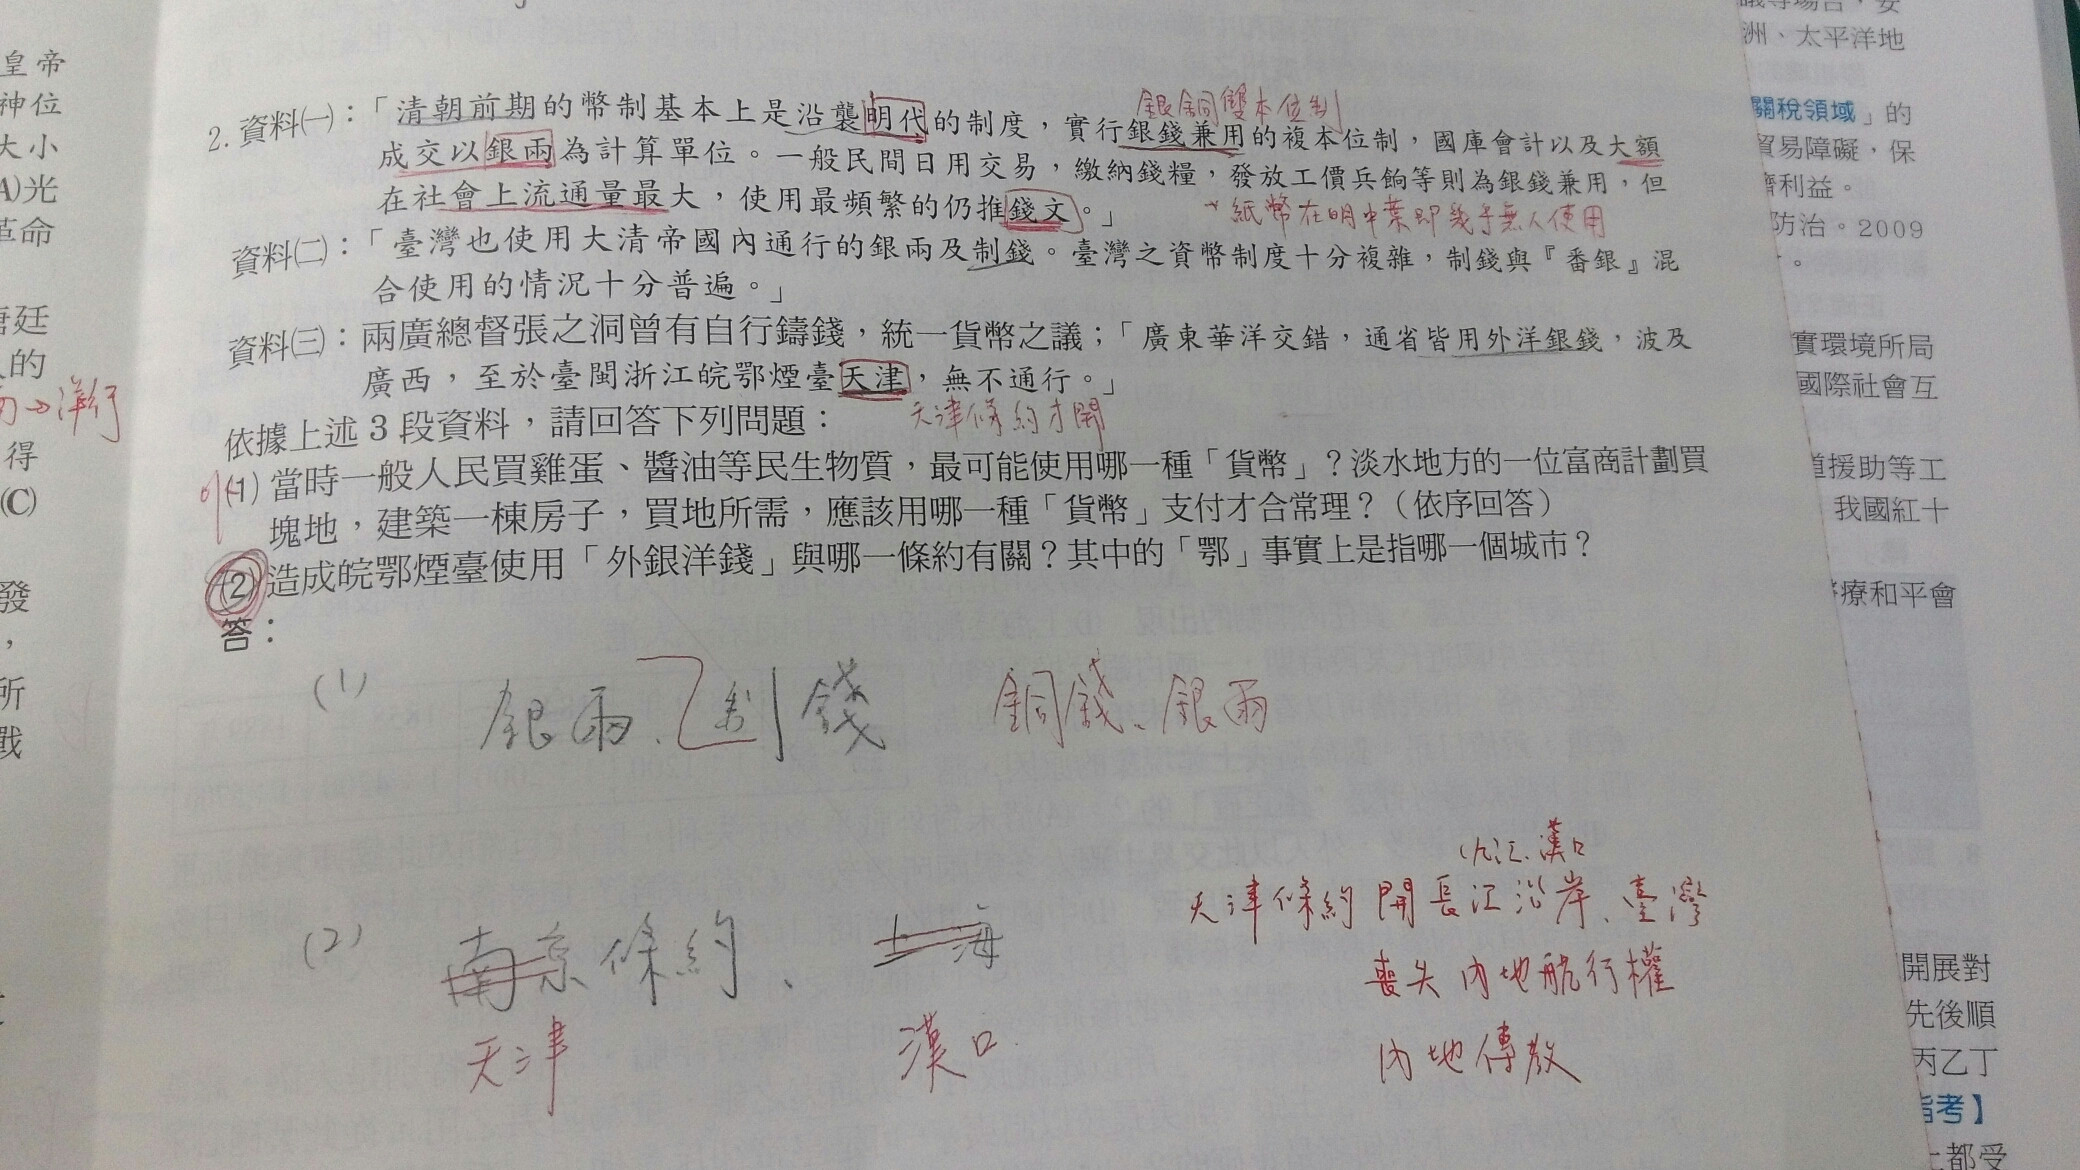 皇帝
神位
大小
A)光
革命
廷
的
洋行
得
(C)
發
，
所
戰
2. 資料㈠：「清朝前期的幣制基本上是沿襲明代的制度，實行銀錢兼用的複本位制，國庫會計以及大額
銀銅雙本位制
成交以銀兩為計算單位。一般民間日用交易，繳納錢糧，發放工價兵餉等則為銀錢兼用，但
在社會上流通量最大，使用最頻繁的仍推錢文。」
紙幣在明中葉即幾乎無人使用
資料㈡：「臺灣也使用大清帝國內通行的銀兩及制錢。臺灣之貨幣制度十分複雜，制錢與『番銀』混
合使用的情況十分普遍。」
資料㈢：兩廣總督張之洞曾有自行鑄錢，統一貨幣之議；「廣東華洋交錯，通省皆用外洋銀錢，波及
廣西，至於臺閩浙江皖鄂煙臺天津，無不通行。」
天津條約才開
依據上述 3 段資料，請回答下列問題：
(1) 當時一般人民買雞蛋、醬油等民生物質，最可能使用哪一種「貨幣」？淡水地方的一位富商計劃買
塊地，建築一棟房子，買地所需，應該用哪一種「貨幣」支付才合常理？（依序回答）
(2) 造成皖鄂煙臺使用「外銀洋錢」與哪一條約有關？其中的「鄂」事實上是指哪一個城市？
答：
(1) 銀兩、制錢 銅錢、銀兩
九江、漢口
(2) 南京條約、上海 天津條約 開長江沿岸、臺灣
喪失內地航行權
天津 漢口
內地傳教
洲、太平洋地
關稅領域」的
貿易障礙，保
濟利益。
防治。2009
。
實環境所局
國際社會互
道援助等工
我國紅十
療和平會
開展對
先後順
丙乙丁
指考】
上都受